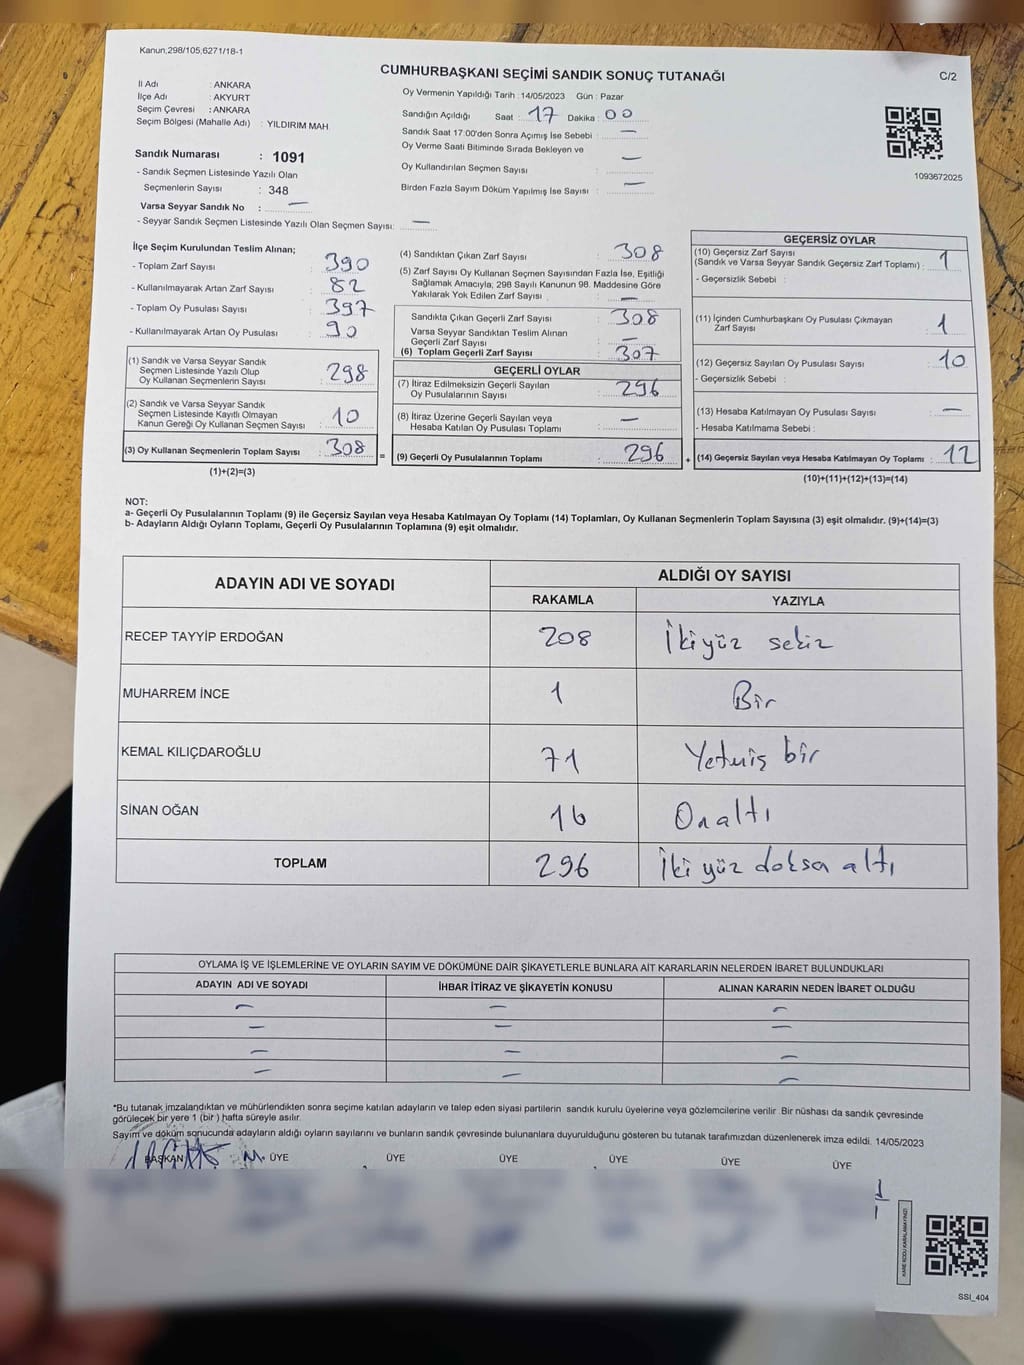 Kanun;298/105,6271/18-1
CUMHURBAŞKANI SEÇİMİ SANDIK SONUÇ TUTANAĞI
C/2
İl Adı : ANKARA
İlçe Adı : AKYURT
Seçim Çevresi : ANKARA
Seçim Bölgesi (Mahalle Adı) : YILDIRIM MAH
Oy Vermenin Yapıldığı Tarih : 14/05/2023 Gün : Pazar
Sandığın Açıldığı Saat : 17 Dakika : 00
Sandık Saat 17:00'den Sonra Açımış İse Sebebi : —
Oy Verme Saati Bitiminde Sırada Bekleyen ve
Oy Kullandırılan Seçmen Sayısı : —
Birden Fazla Sayım Döküm Yapılmış İse Sayısı : —
1093672025
Sandık Numarası : 1091
- Sandık Seçmen Listesinde Yazılı Olan
Seçmenlerin Sayısı : 348
Varsa Seyyar Sandık No : —
- Seyyar Sandık Seçmen Listesinde Yazılı Olan Seçmen Sayısı: —
İlçe Seçim Kurulundan Teslim Alınan;
- Toplam Zarf Sayısı : 390
- Kullanılmayarak Artan Zarf Sayısı : 82
- Toplam Oy Pusulası Sayısı : 397
- Kullanılmayarak Artan Oy Pusulası : 90
(1) Sandık ve Varsa Seyyar Sandık
Seçmen Listesinde Yazılı Olup
Oy Kullanan Seçmenlerin Sayısı : 298
(2) Sandık ve Varsa Seyyar Sandık
Seçmen Listesinde Kayıtlı Olmayan
Kanun Gereği Oy Kullanan Seçmen Sayısı : 10
(3) Oy Kullanan Seçmenlerin Toplam Sayısı : 308
(1)+(2)=(3)
(4) Sandıktan Çıkan Zarf Sayısı : 308
(5) Zarf Sayısı Oy Kullanan Seçmen Sayısından Fazla İse, Eşitliği
Sağlamak Amacıyla; 298 Sayılı Kanunun 98. Maddesine Göre
Yakılarak Yok Edilen Zarf Sayısı : —
Sandıkta Çıkan Geçerli Zarf Sayısı : 308
Varsa Seyyar Sandıktan Teslim Alınan
Geçerli Zarf Sayısı : —
(6) Toplam Geçerli Zarf Sayısı : 307
GEÇERLİ OYLAR
(7) İtiraz Edilmeksizin Geçerli Sayılan
Oy Pusulalarının Sayısı : 296
(8) İtiraz Üzerine Geçerli Sayılan veya
Hesaba Katılan Oy Pusulası Toplamı : —
= (9) Geçerli Oy Pusulalarının Toplamı : 296
GEÇERSİZ OYLAR
(10) Geçersiz Zarf Sayısı
(Sandık ve Varsa Seyyar Sandık Geçersiz Zarf Toplamı) : 1
- Geçersizlik Sebebi :
(11) İçinden Cumhurbaşkanı Oy Pusulası Çıkmayan
Zarf Sayısı : 1
(12) Geçersiz Sayılan Oy Pusulası Sayısı : 10
- Geçersizlik Sebebi :
(13) Hesaba Katılmayan Oy Pusulası Sayısı : —
- Hesaba Katılmama Sebebi :
+ (14) Geçersiz Sayılan veya Hesaba Katılmayan Oy Toplamı : 12
(10)+(11)+(12)+(13)=(14)
NOT:
a- Geçerli Oy Pusulalarının Toplamı (9) ile Geçersiz Sayılan veya Hesaba Katılmayan Oy Toplamı (14) Toplamları, Oy Kullanan Seçmenlerin Toplam Sayısına (3) eşit olmalıdır. (9)+(14)=(3)
b- Adayların Aldığı Oyların Toplamı, Geçerli Oy Pusulalarının Toplamına (9) eşit olmalıdır.
ADAYIN ADI VE SOYADI ALDIĞI OY SAYISI
RAKAMLA YAZIYLA
RECEP TAYYİP ERDOĞAN 208 İkiyüz sekiz
MUHARREM İNCE 1 Bir
KEMAL KILIÇDAROĞLU 71 Yetmiş bir
SİNAN OĞAN 16 Onaltı
TOPLAM 296 İki yüz doksa altı
OYLAMA İŞ VE İŞLEMLERİNE VE OYLARIN SAYIM VE DÖKÜMÜNE DAİR ŞİKAYETLERLE BUNLARA AİT KARARLARIN NELERDEN İBARET BULUNDUKLARI
ADAYIN ADI VE SOYADI İHBAR İTİRAZ VE ŞİKAYETİN KONUSU ALINAN KARARIN NEDEN İBARET OLDUĞU
— — —
— — —
— — —
— — —
*Bu tutanak imzalandıktan ve mühürlendikten sonra seçime katılan adayların ve talep eden siyasi partilerin sandık kurulu üyelerine veya gözlemcilerine verilir. Bir nüshası da sandık çevresinde
görülecek bir yere 1 (bir ) hafta süreyle asılır.
Sayım ve döküm sonucunda adayların aldığı oyların sayılarını ve bunların sandık çevresinde bulunanlara duyurulduğunu gösteren bu tutanak tarafımızdan düzenlenerek imza edildi. 14/05/2023
BAŞKAN ÜYE ÜYE ÜYE ÜYE ÜYE ÜYE
KARE KODU KARALAMAYINIZ!
SSI_404